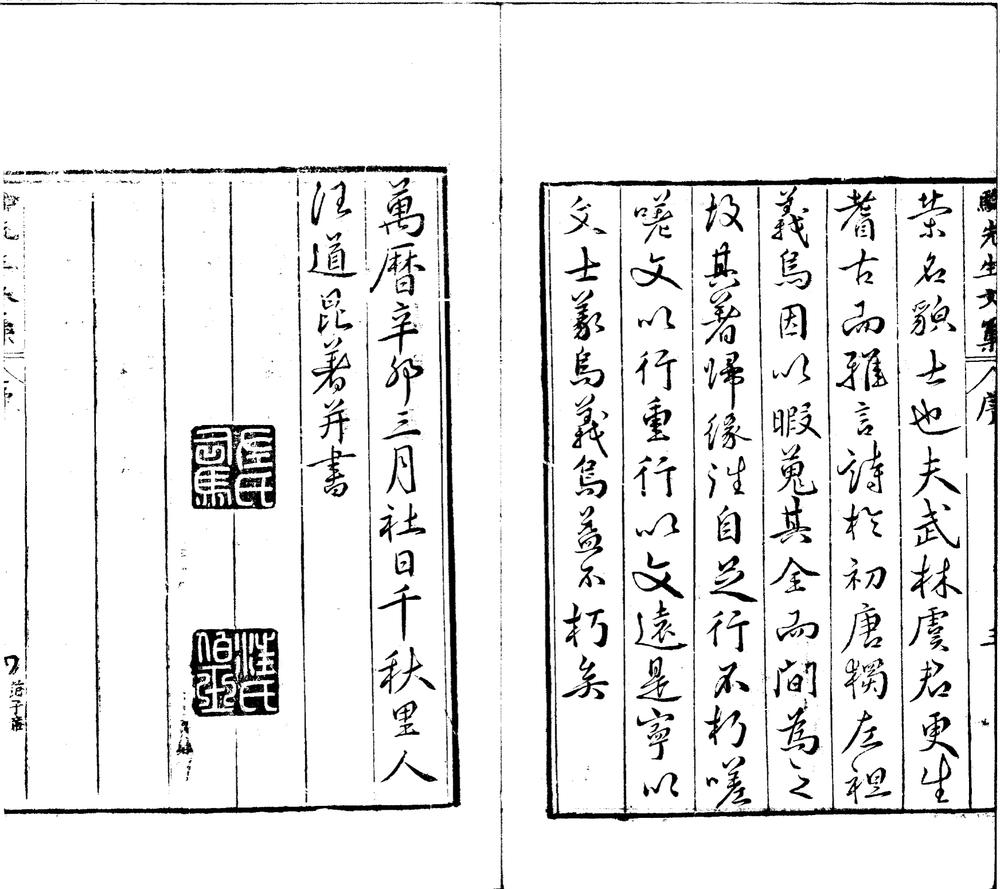 駱先生文集 序 三
榮名䫉士也夫武林虞君更生
耆古而雅言詩於初唐獨左袒
義烏因以暇蒐其全而間為之
故其著歸緣注自足行不朽嗟
嗟文以行重行以文遠是寧以
文士義烏義烏益不朽矣
萬曆辛卯三月社日千秋里人
汪道昆著并書
左氏司馬
汪氏伯玉